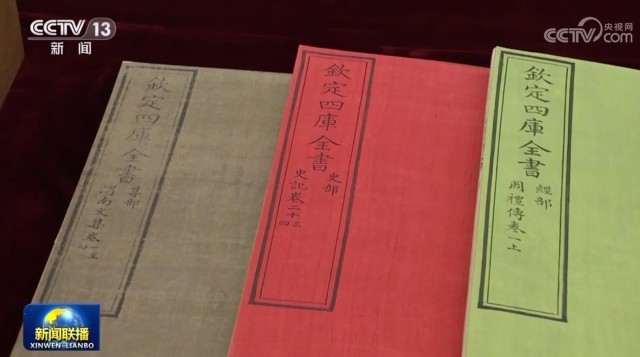 CCTV 13
新闻
央视网
CCTV.com
欽定四庫全書
集部
渭南文集卷一至
欽定四庫全書
史部
史記卷二十三
四
欽定四庫全書
經部
周禮傳卷一上
新闻联播
XINWEN LIANBO